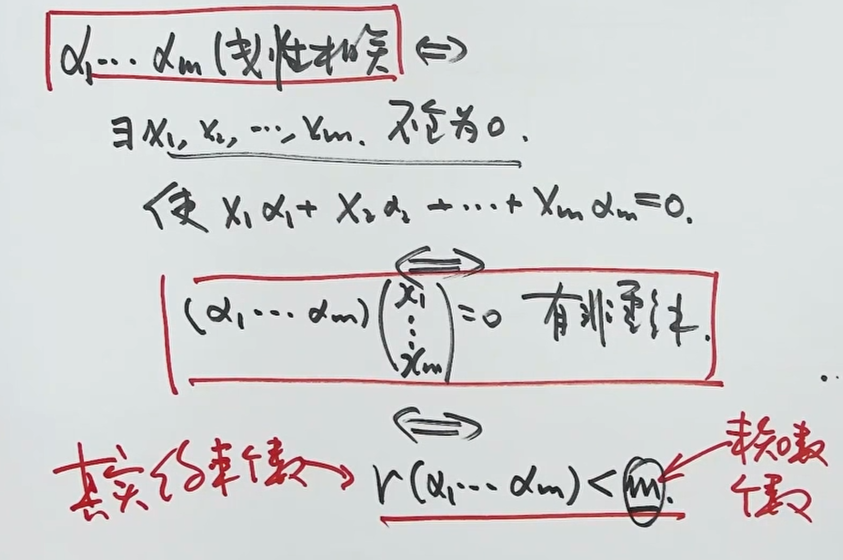 α₁⋯αm线性相关 ⇔
∃ x₁, x₂, ⋯, xm. 不全为0.
使 x₁α₁+x₂α₂+⋯+xmαm=0.
⇔
(α₁⋯αm)(x₁ ⋮ xm)=0 有非零解.
⇔
真实约束个数→ r(α₁⋯αm)<m. ←未知数个数